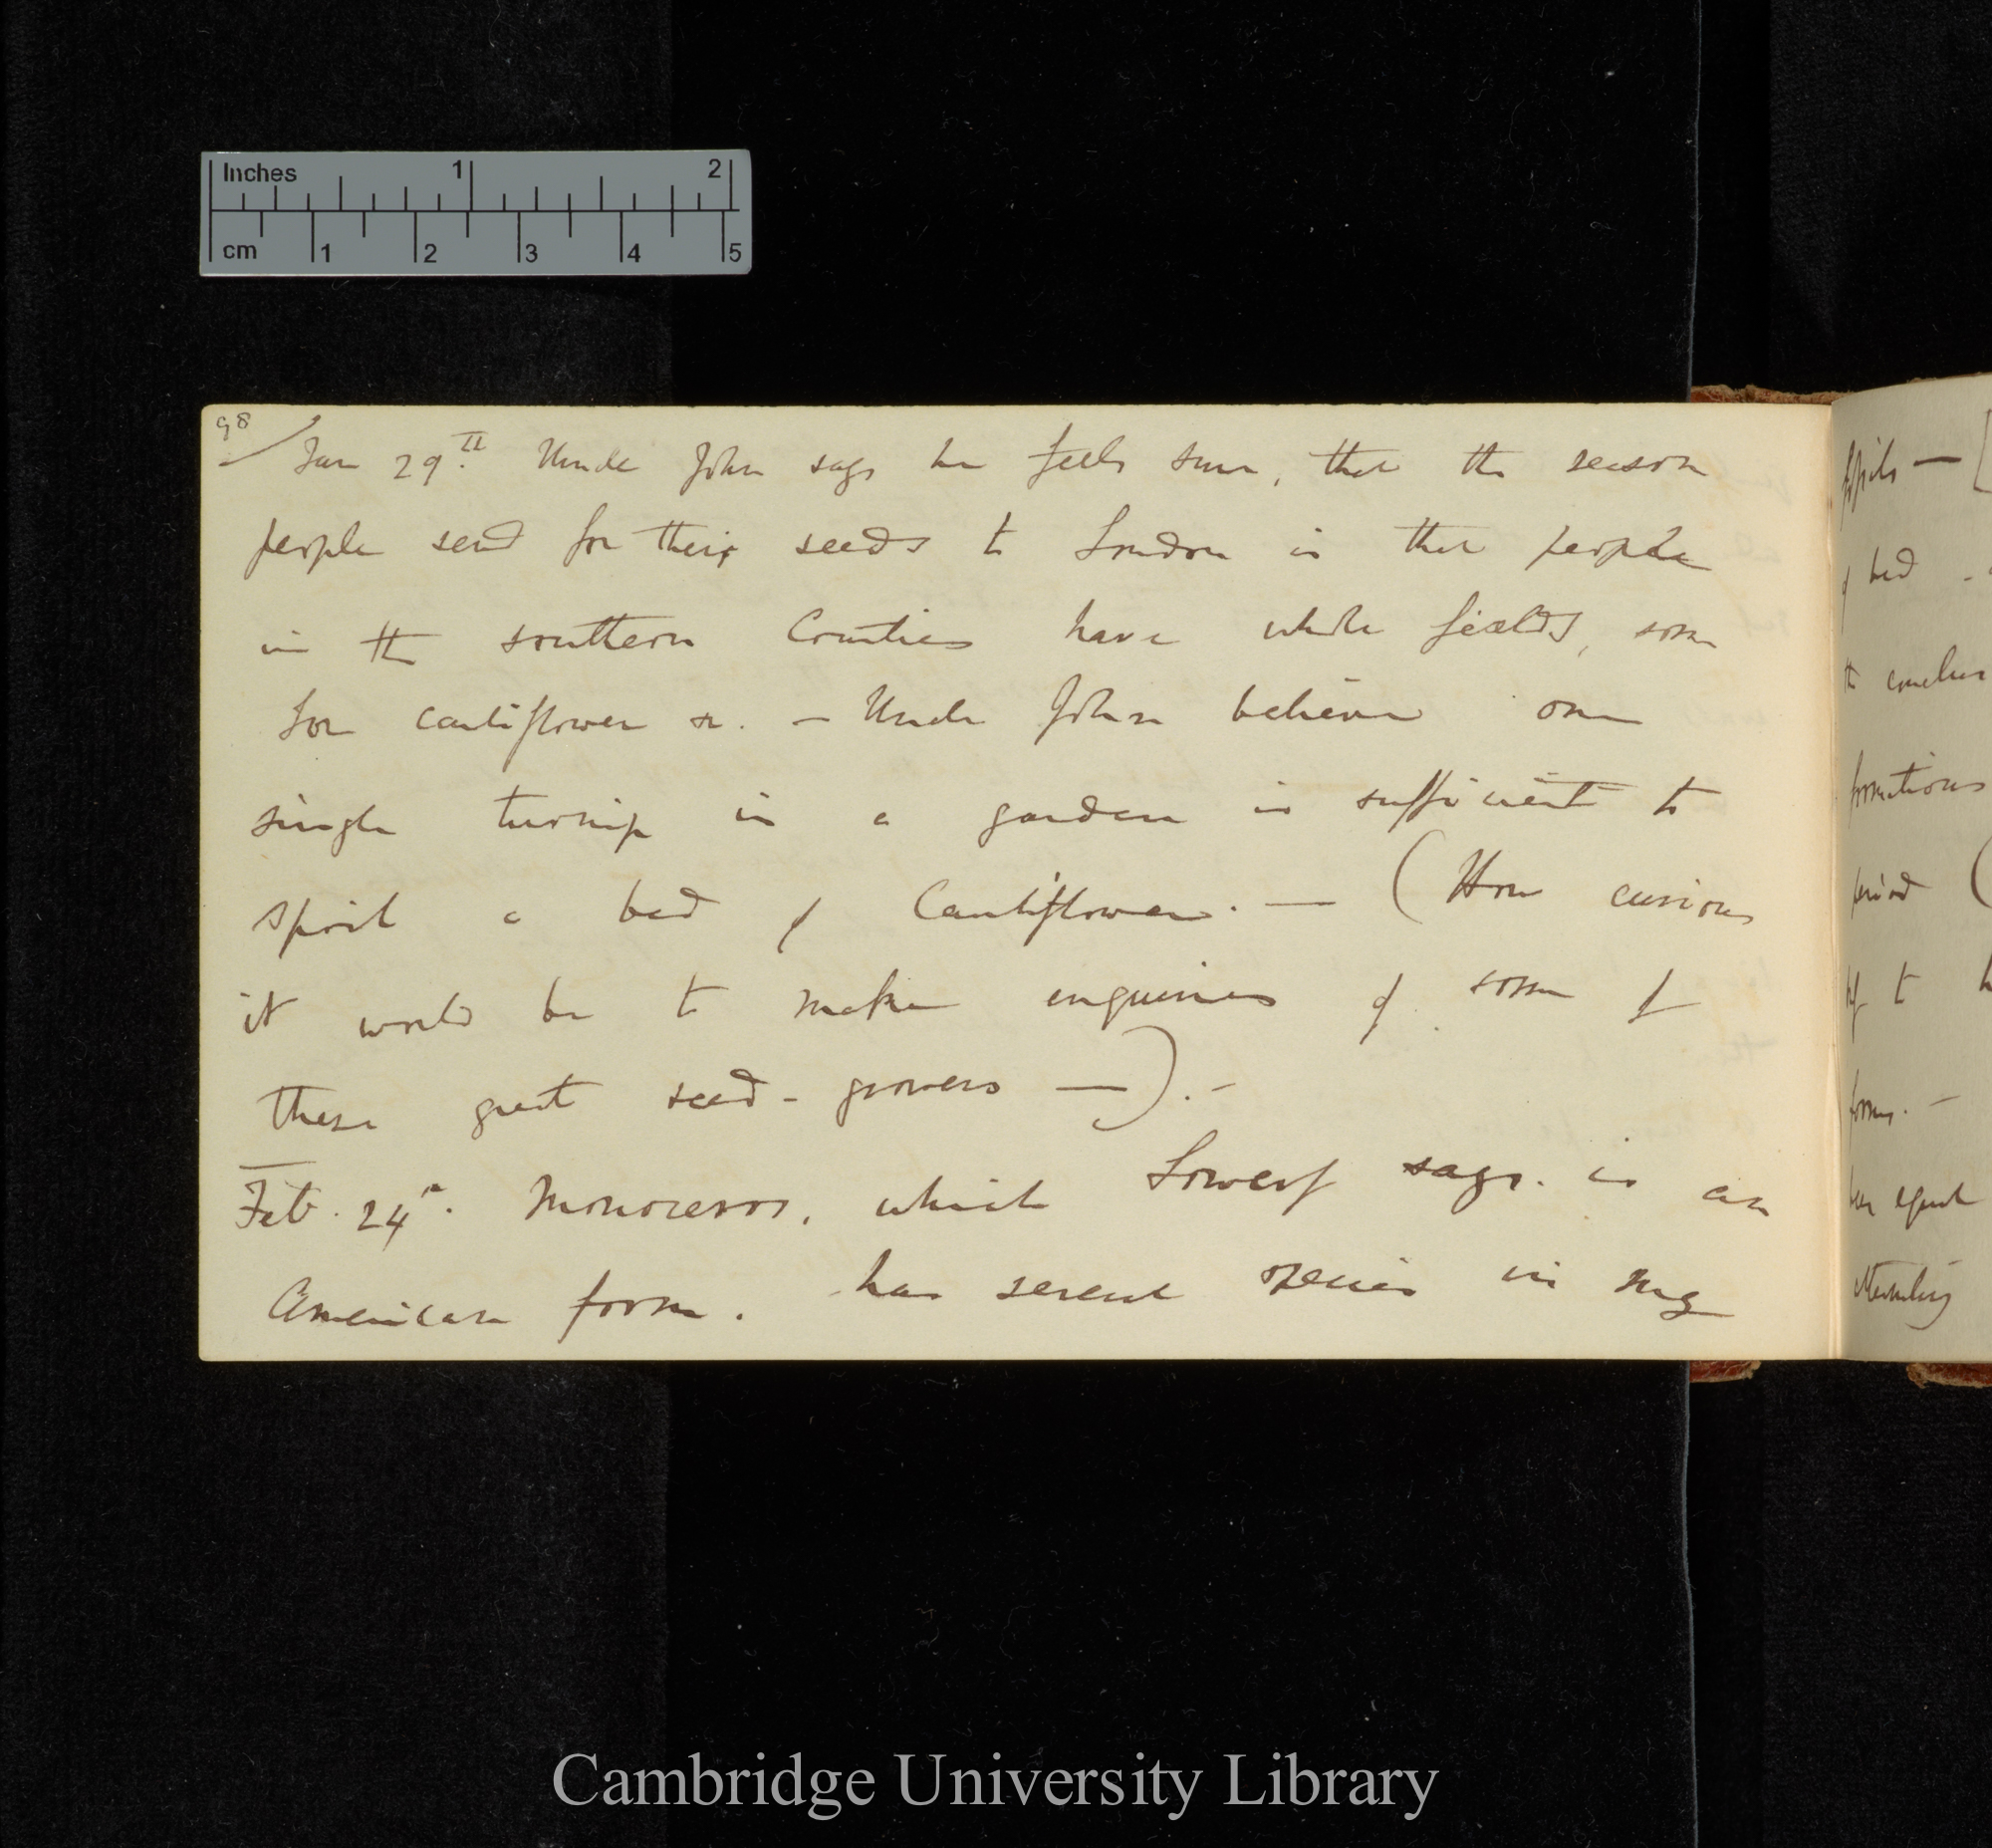 Inches 1 2
cm 1 2 3 4 5
98
Jan 29th. Uncle John says he feels sure, that the reason
people send for their seeds to London is that people
in the southern Counties have whole fields, some
for cauliflower &c. — Uncle John believes one
single turnip in a garden is sufficient to
spoil a bed of Cauliflower. — (How curious
it would be to make enquiries of some of
these great seed-growers —). –
Feb. 24th. Monoceros, which Sowerby says. is an
American form. has several species in my
fossils — [
of bed -
the conclus
formations
period (
to
forms. —
been equal